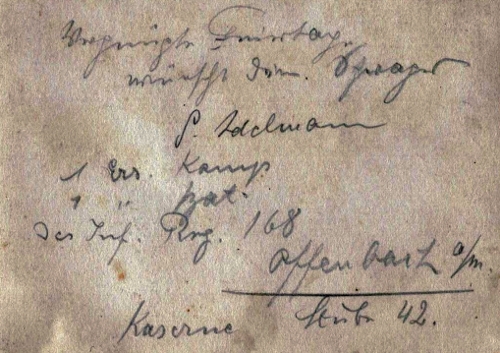 Vergnügte Feiertage
wünscht Dein. Schwager
S. Edelmann
1 Ers. Komp
1 " Bat.
des Inf. Reg. 168
Offenbach a/m.
Kaserne Stube 42.